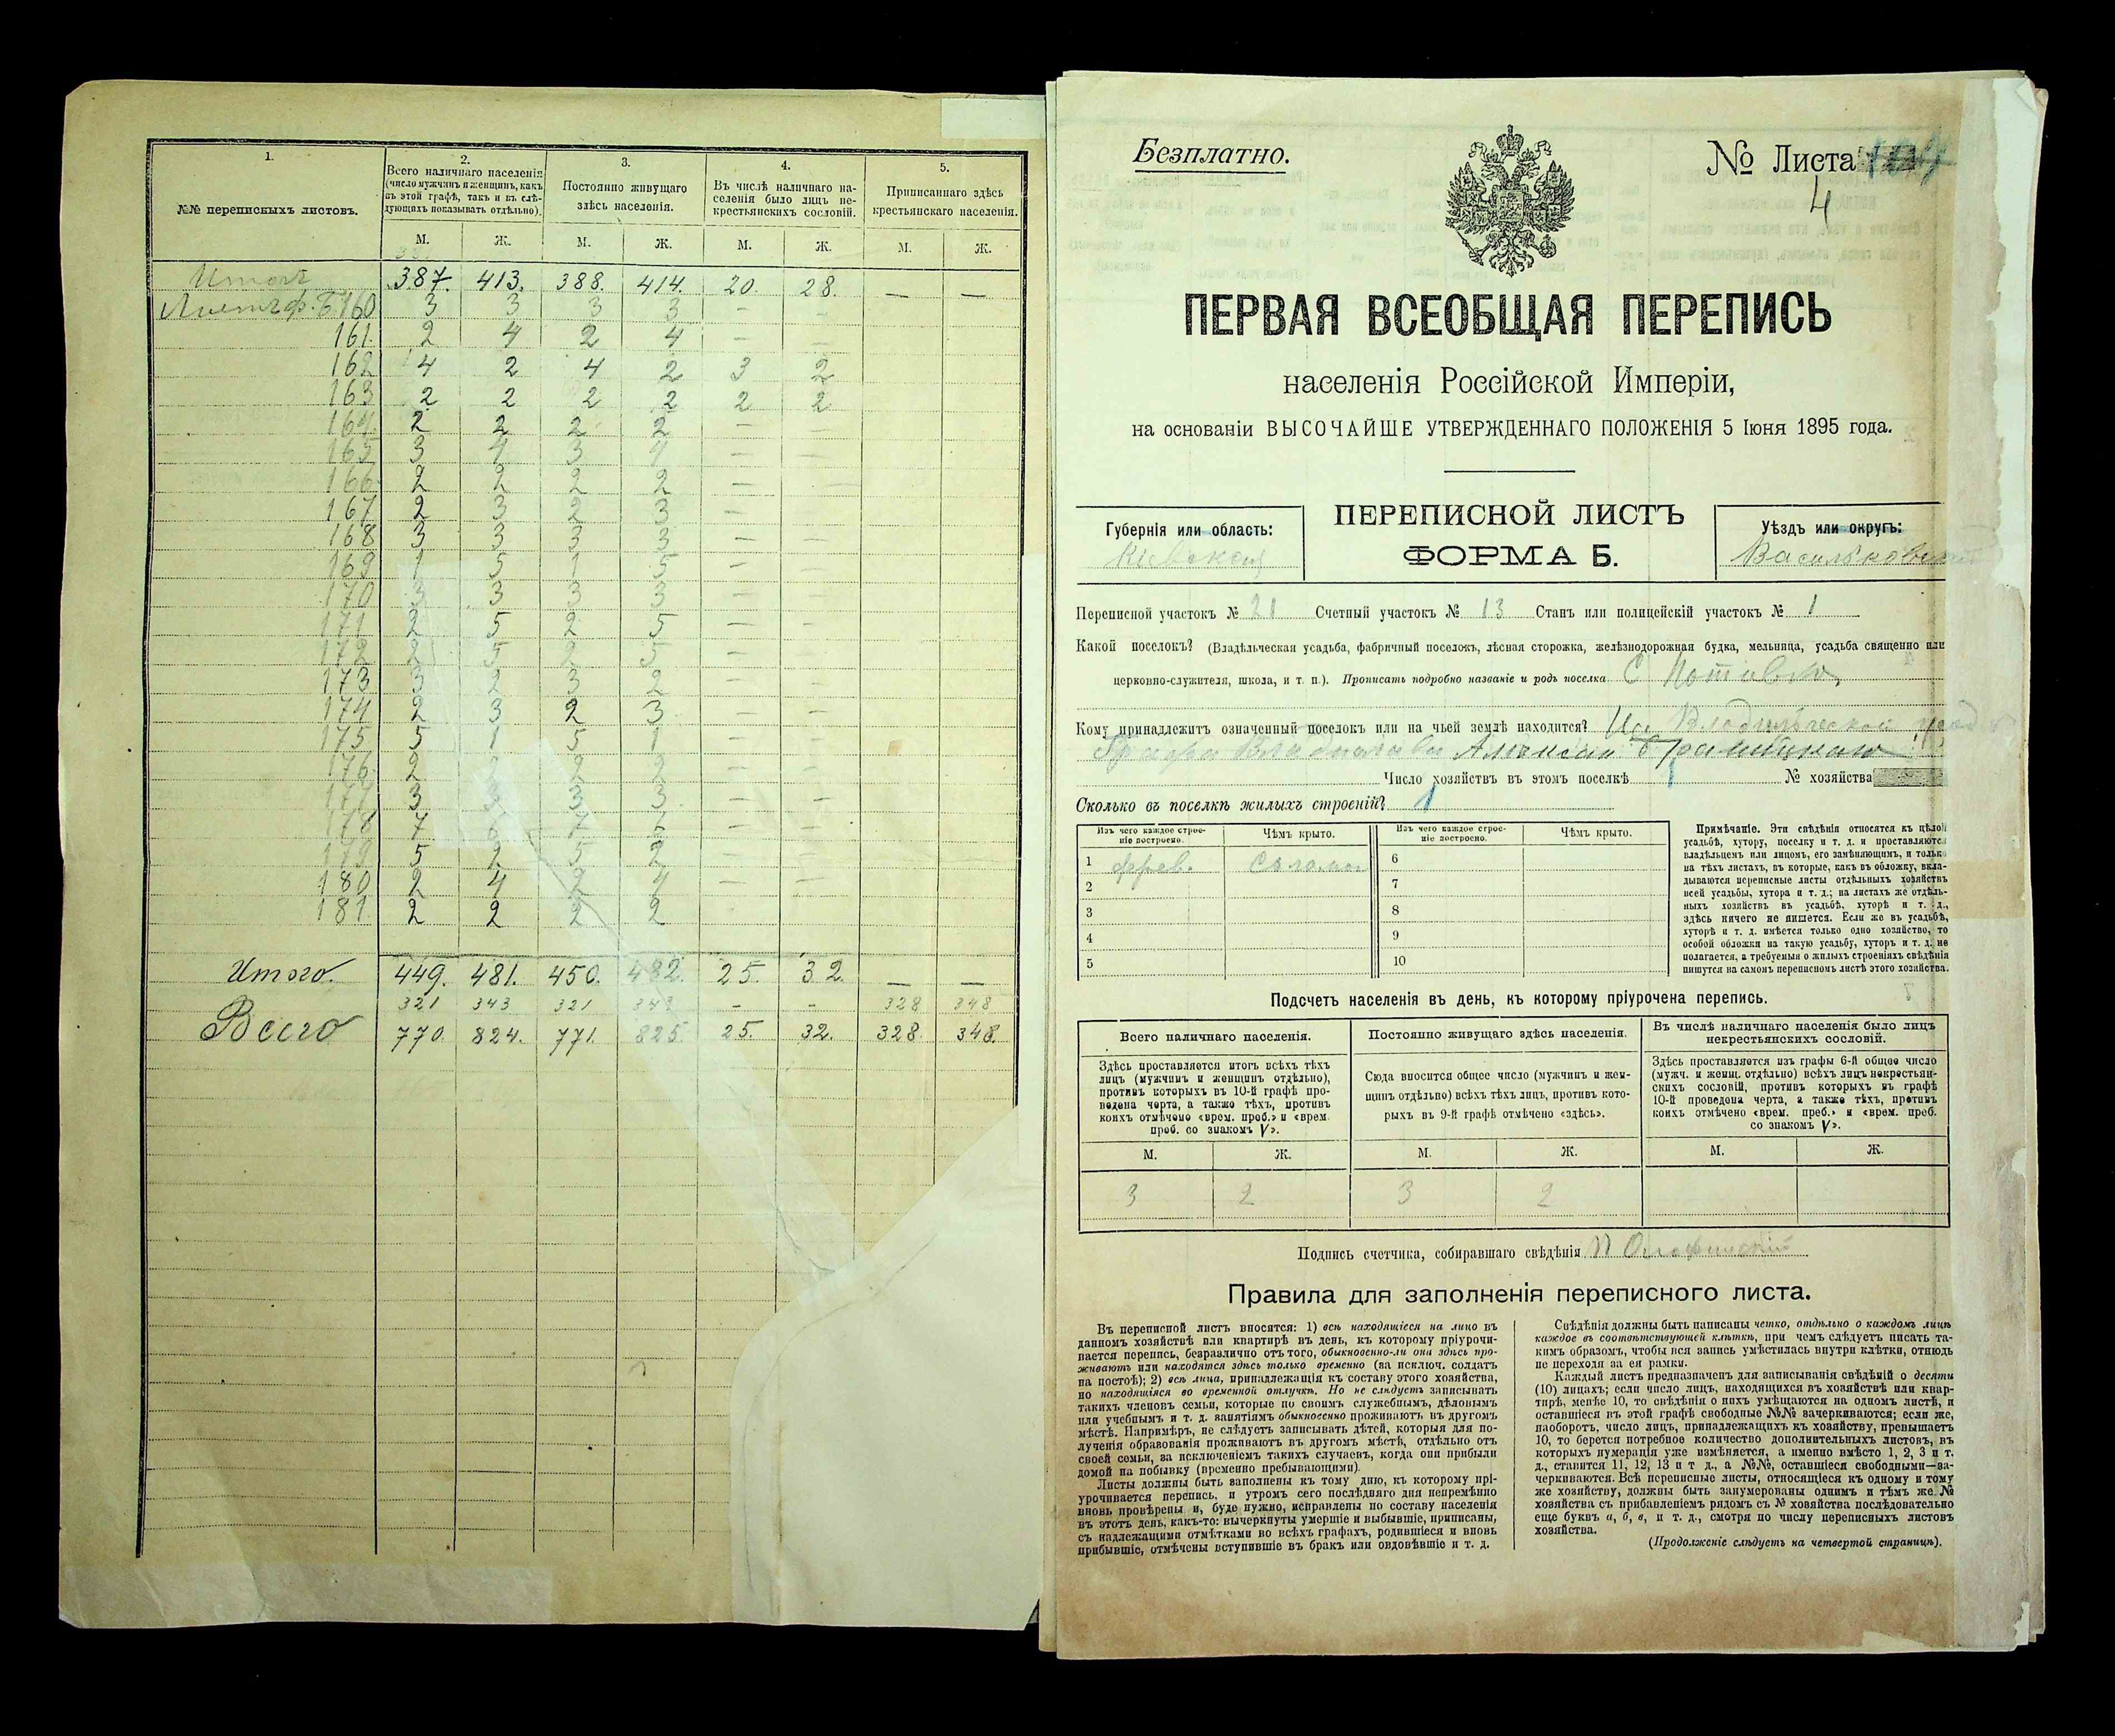 1.
№№ переписныхъ листовъ.
2.
Всего наличнаго населенія
(число мужчинъ и женщинъ, какъ
въ этой графѣ, такъ и въ слѣ-
дующихъ показывать отдѣльно).
3.
Постоянно живущаго
здѣсь населенія.
4.
Въ числѣ наличнаго на-
селенія было лицъ не-
крестьянскихъ сословій.
5.
Приписаннаго здѣсь
крестьянскаго населенія.
М. Ж. М. Ж. М. Ж. М. Ж.
387. 413. 388. 414. 20. 28. — —
160 3 3 3 3 - -
161 2 4 2 4 — —
162 4 2 4 2 3 2
163 2 2 2 2 2 2
164 2 2 2 2 — —
165 3 4 3 4 — —
166 2 2 2 2 — —
167 2 3 2 3 — —
168 3 3 3 3 — —
169 1 5 1 5 — —
170 3 3 3 3 — —
171 2 5 2 5 — —
172 2 5 2 5 — —
173 3 2 3 2 — —
174 2 3 2 3 — —
175 5 1 5 1 — —
176 2 2 — —
177 3 3 3 — —
178 7 7 — —
179 5 2 5 2 — —
180 2 4 2 4 — —
181 2 2 2 2
Итого. 449. 481. 450. 482. 25. 32. — —
321 343 321 343 - - 328 348
Всего 770. 824. 771. 825. 25. 32. 328 348.
Безплатно.
№ Листа
4
ПЕРВАЯ ВСЕОБЩАЯ ПЕРЕПИСЬ
населенія Россійской Имперіи,
на основаніи ВЫСОЧАЙШЕ УТВЕРЖДЕННАГО ПОЛОЖЕНІЯ 5 Іюня 1895 года.
Губернія или область:
Кіевской
ПЕРЕПИСНОЙ ЛИСТЪ
ФОРМА Б.
Уѣздъ или округъ:
Васильковскій
Переписной участокъ № 21 Счетный участокъ № 13 Станъ или полицейскій участокъ № 1
Какой поселокъ? (Владѣльческая усадьба, фабричный поселокъ, лѣсная сторожка, желѣзнодорожная будка, мельница, усадьба священно или
церковно-служителя, школа, и т. п.). Прописать подробно названіе и родъ поселка С
Кому принадлежитъ означенный поселокъ или на чьей землѣ находится? На Владѣльческой
Графа Владислава
Число хозяйствъ въ этомъ поселкѣ 1 № хозяйства
Сколько въ поселкѣ жилыхъ строеній? 1
Изъ чего каждое строе-
ніе построено.
Чѣмъ крыто.
Изъ чего каждое строе-
ніе построено.
Чѣмъ крыто.
1 дерев. Солом 6
2 7
3 8
4 9
5 10
Примѣчаніе. Эти свѣдѣнія относятся къ цѣлой
усадьбѣ, хутору, поселку и т. д. и проставляются
владѣльцемъ или лицомъ, его замѣняющимъ, и только
на тѣхъ листахъ, въ которые, какъ въ обложку, вкла-
дываются переписные листы отдѣльныхъ хозяйствъ
всей усадьбы, хутора и т. д.; на листахъ же отдѣль-
ныхъ хозяйствъ въ усадьбѣ, хуторѣ и т. д.,
здѣсь ничего не пишется. Если же въ усадьбѣ,
хуторѣ и т. д. имѣется только одно хозяйство, то
особой обложки на такую усадьбу, хуторъ и т. д. не
полагается, а требуемыя о жилыхъ строеніяхъ свѣдѣнія
пишутся на самомъ переписномъ листѣ этого хозяйства.
Подсчетъ населенія въ день, къ которому пріурочена перепись.
Всего наличнаго населенія.
Здѣсь проставляется итогъ всѣхъ тѣхъ
лицъ (мужчинъ и женщинъ отдѣльно),
противъ которыхъ въ 10-й графѣ про-
ведена черта, а также тѣхъ, противъ
коихъ отмѣчено «врем. преб.» и «врем.
преб. со знакомъ V».
Постоянно живущаго здѣсь населенія.
Сюда вносится общее число (мужчинъ и жен-
щинъ отдѣльно) всѣхъ тѣхъ лицъ, противъ кото-
рыхъ въ 9-й графѣ отмѣчено «здѣсь».
Въ числѣ наличнаго населенія было лицъ
некрестьянскихъ сословій.
Здѣсь проставляется изъ графы 6-й общее число
(мужч. и женщ. отдѣльно) всѣхъ лицъ некрестьян-
скихъ сословій, противъ которыхъ въ графѣ
10-й проведена черта, а также тѣхъ, противъ
коихъ отмѣчено «врем. преб.» и «врем. преб.
со знакомъ V».
М. Ж. М. Ж. М. Ж.
3 2 3 2
Подпись счетчика, собиравшаго свѣдѣнія
Правила для заполненія переписного листа.
Въ переписной листъ вносятся: 1) всѣ находящіеся на лицо въ
данномъ хозяйствѣ или квартирѣ въ день, къ которому пріурочи-
вается перепись, безразлично отъ того, обыкновенно-ли они здѣсь про-
живаютъ или находятся здѣсь только временно (за исключ. солдатъ
на постоѣ); 2) всѣ лица, принадлежащія къ составу этого хозяйства,
но находящіяся во временной отлучкѣ. Но не слѣдуетъ записывать
такихъ членовъ семьи, которые по своимъ служебнымъ, дѣловымъ
или учебнымъ и т. д. занятіямъ обыкновенно проживаютъ въ другомъ
мѣстѣ. Напримѣръ, не слѣдуетъ записывать дѣтей, которыя для по-
лученія образованія проживаютъ въ другомъ мѣстѣ, отдѣльно отъ
своей семьи, за исключеніемъ такихъ случаевъ, когда они прибыли
домой на побывку (временно пребывающими).
Листы должны быть заполнены къ тому дню, къ которому прі-
урочивается перепись, и утромъ сего послѣдняго дня непремѣнно
вновь провѣрены и, буде нужно, исправлены по составу населенія
въ этотъ день, какъ-то: вычеркнуты умершіе и выбывшіе, приписаны,
съ надлежащими отмѣтками во всѣхъ графахъ, родившіеся и вновь
прибывшіе, отмѣчены вступившіе въ бракъ или овдовѣвшіе и т. д.
Свѣдѣнія должны быть написаны четко, отдѣльно о каждомъ лицѣ
каждое въ соотвѣтствующей клѣткѣ, при чемъ слѣдуетъ писать та-
кимъ образомъ, чтобы вся запись умѣстилась внутри клѣтки, отнюдь
не переходя за ея рамки.
Каждый листъ предназначенъ для записыванія свѣдѣній о десяти
(10) лицахъ; если число лицъ, находящихся въ хозяйствѣ или квар-
тирѣ, менѣе 10, то свѣдѣнія о нихъ умѣщаются на одномъ листѣ, и
оставшіеся въ этой графѣ свободные №№ зачеркиваются; если же,
наоборотъ, число лицъ, принадлежащихъ къ хозяйству, превышаетъ
10, то берется потребное количество дополнительныхъ листовъ, въ
которыхъ нумерація уже измѣняется, а именно вмѣсто 1, 2, 3 и т.
д., ставится 11, 12, 13 и т д., а №№, оставшіеся свободными—за-
черкиваются. Всѣ переписные листы, относящіеся къ одному и тому
же хозяйству, должны быть занумерованы однимъ и тѣмъ же №
хозяйства съ прибавленіемъ рядомъ съ № хозяйства послѣдовательно
еще буквъ а, б, в, и т. д., смотря по числу переписныхъ листовъ
хозяйства.
(Продолженіе слѣдуетъ на четвертой страницѣ).